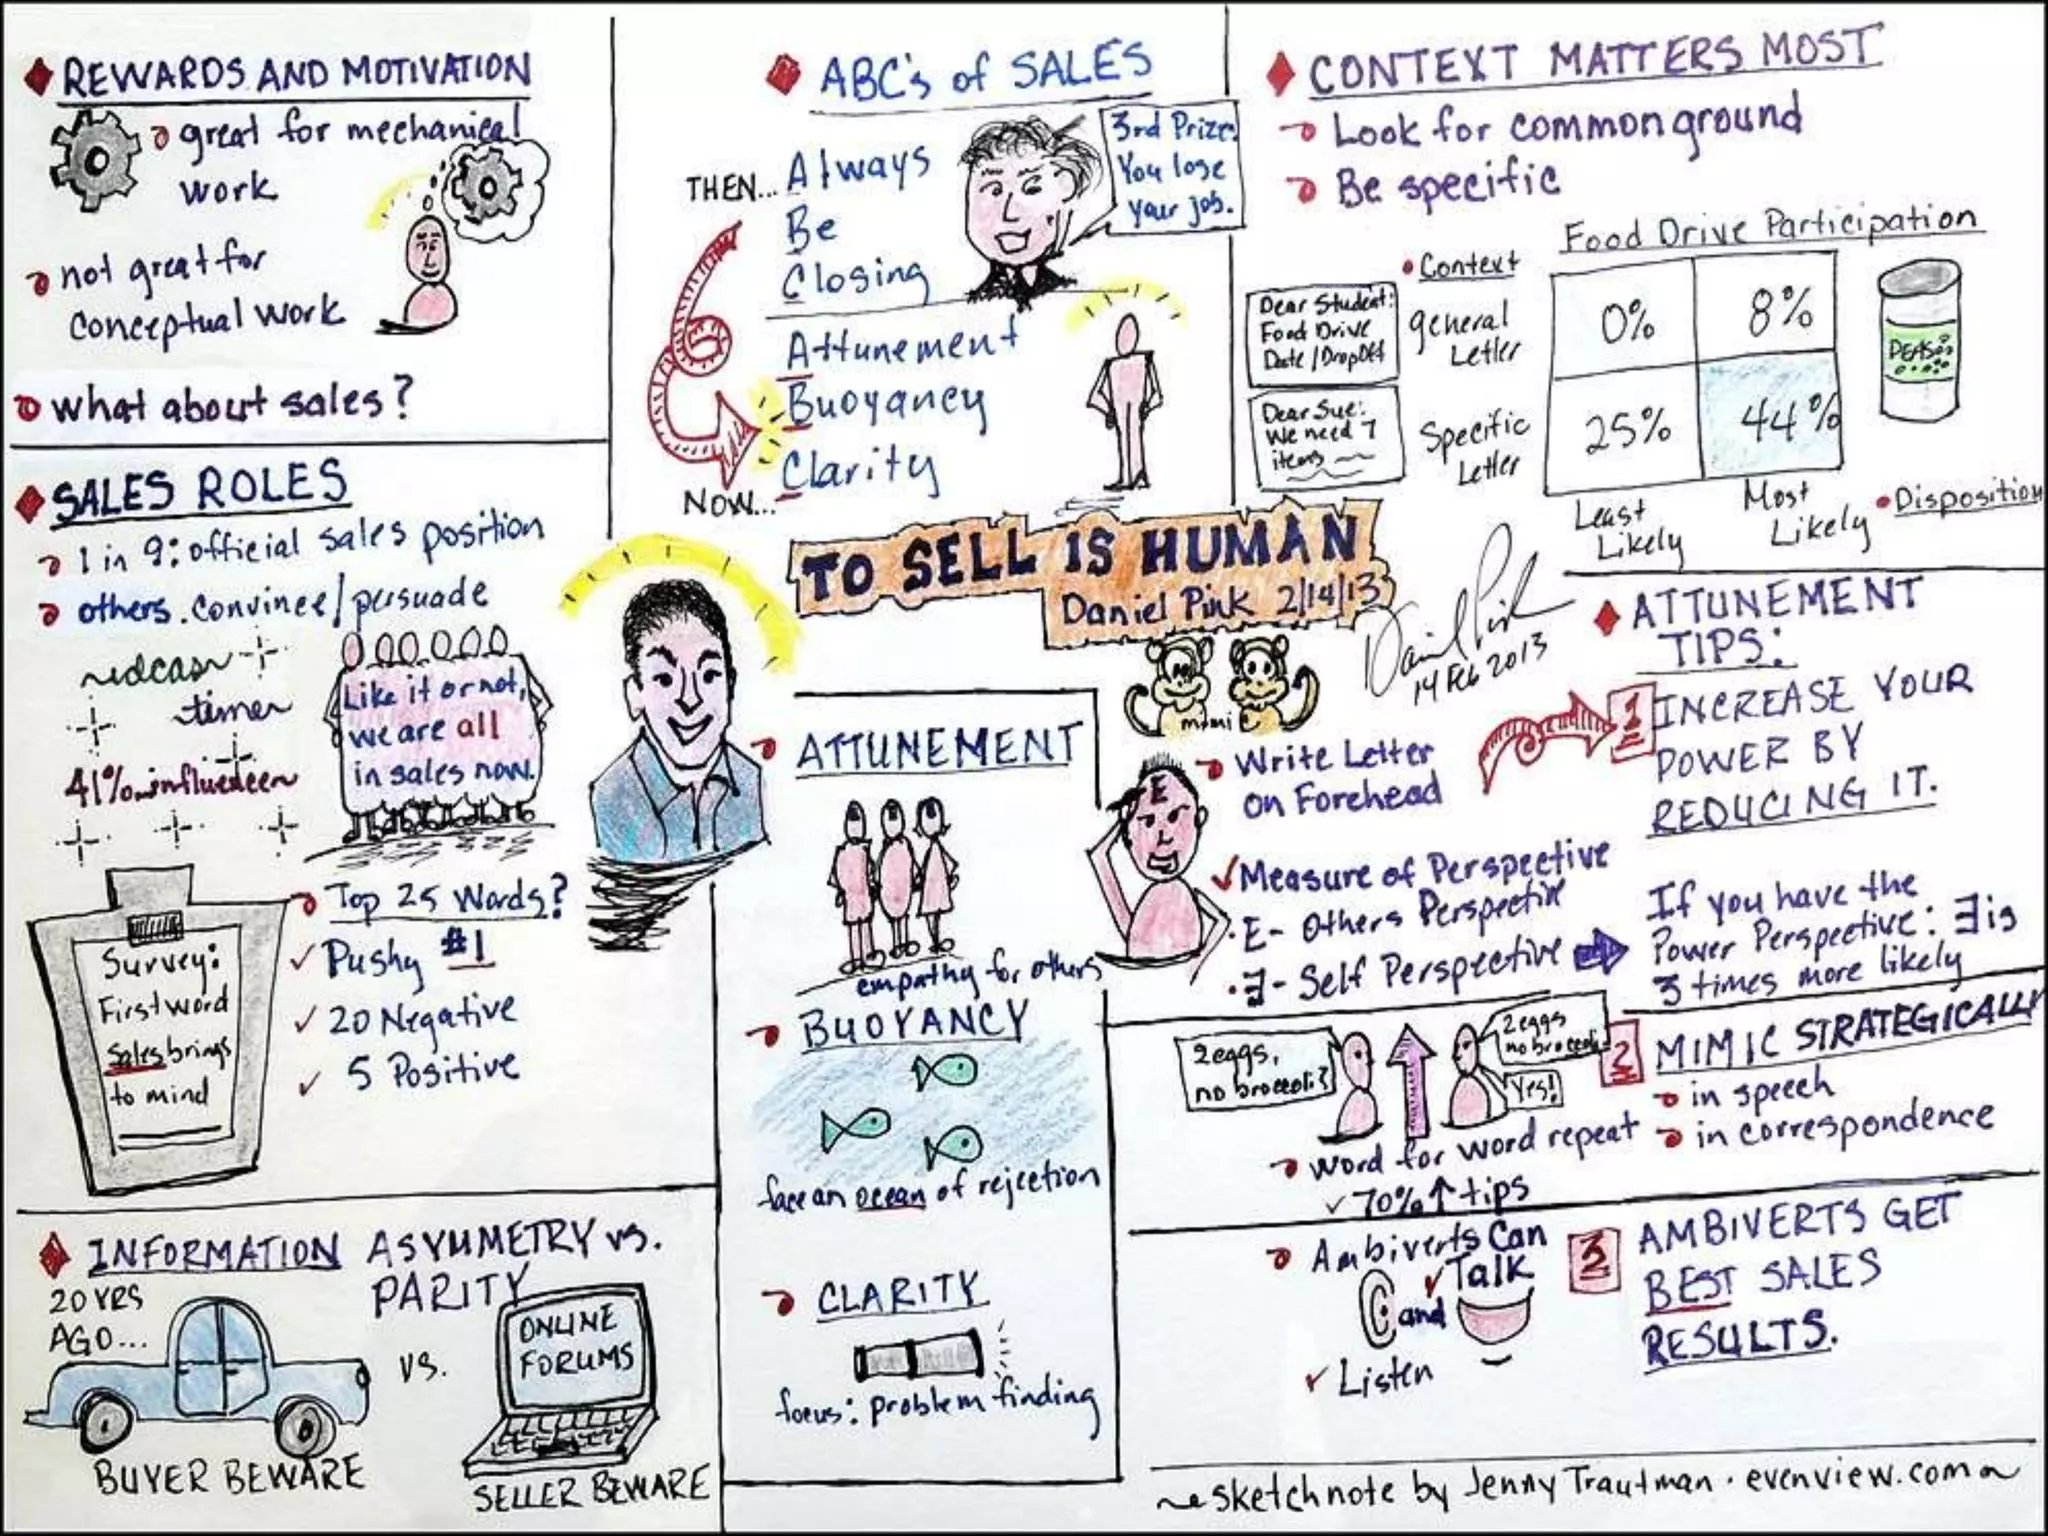 REWARDS AND MOTIVATION
great for mechanical
work
not great for
conceptual work
what about sales?
SALES ROLES
1 in 9: official sales position
others. convince/persuade
timer
41%
Like it or not,
we are all
in sales now.
Survey:
First word
sales brings
to mind
Top 25 Words?
Pushy #1
20 Negative
5 Positive
INFORMATION ASYMMETRY vs.
PARITY
20 YRS
AGO...
vs.
ONLINE
FORUMS
BUYER BEWARE
SELLER BEWARE
ABC's of SALES
THEN...
Always
Be
Closing
3rd Prize:
You lose
your job.
Attunement
Buoyancy
Clarity
NOW...
TO SELL IS HUMAN
Daniel Pink 2/14/13
Daniel Pink
14 Feb 2013
ATTUNEMENT
empathy for others
BUOYANCY
face an ocean of rejection
CLARITY
focus: problem finding
CONTEXT MATTERS MOST
Look for common ground
Be specific
Food Drive Participation
Context
Dear Student:
Food Drive
Date/DropOff
general
Letter
0%
8%
PEAS
Dear Sue:
We need 7
items
Specific
Letter
25%
44%
Least
Likely
Most
Likely
Disposition
ATTUNEMENT
TIPS:
1
INCREASE YOUR
POWER BY
REDUCING IT.
Write Letter
on Forehead
E
Measure of Perspective
E- Others Perspective
Ǝ- Self Perspective
If you have the
Power Perspective: Ǝ is
3 times more likely
2
MIMIC STRATEGICALLY
in speech
in correspondence
2 eggs,
no broccoli?
2 eggs
no broccoli
Yes!
word for word repeat
70% ↑ tips
3
AMBIVERTS GET
BEST SALES
RESULTS.
Ambiverts Can
Talk
and
Listen
sketchnote by Jenny Trautman · evenview.com